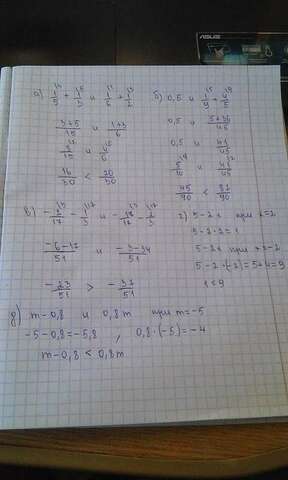 ASUS
а) 1/5 + 1/3 и 1/6 + 1/2
3+5/15 и 1+3/6
8/15 и 4/6
16/30 < 20/30
б) 0,5 и 1/9 + 4/5
0,5 и 5+36/45
0,5 и 41/45
5/10 и 41/45
45/90 < 82/90
в) -2/17 - 1/3 и -1/17 - 2/3
-6-17/51 и -3-34/51
-23/51 > -37/51
г) 5-2x при x=2
5-2·2=1
5-2x при x=-2
5-2·(-2)=5+4=9
1≤9
д) m-0,8 и 0,8m при m=-5
-5-0,8=-5,8 , 0,8·(-5)=-4
m-0,8 < 0,8m